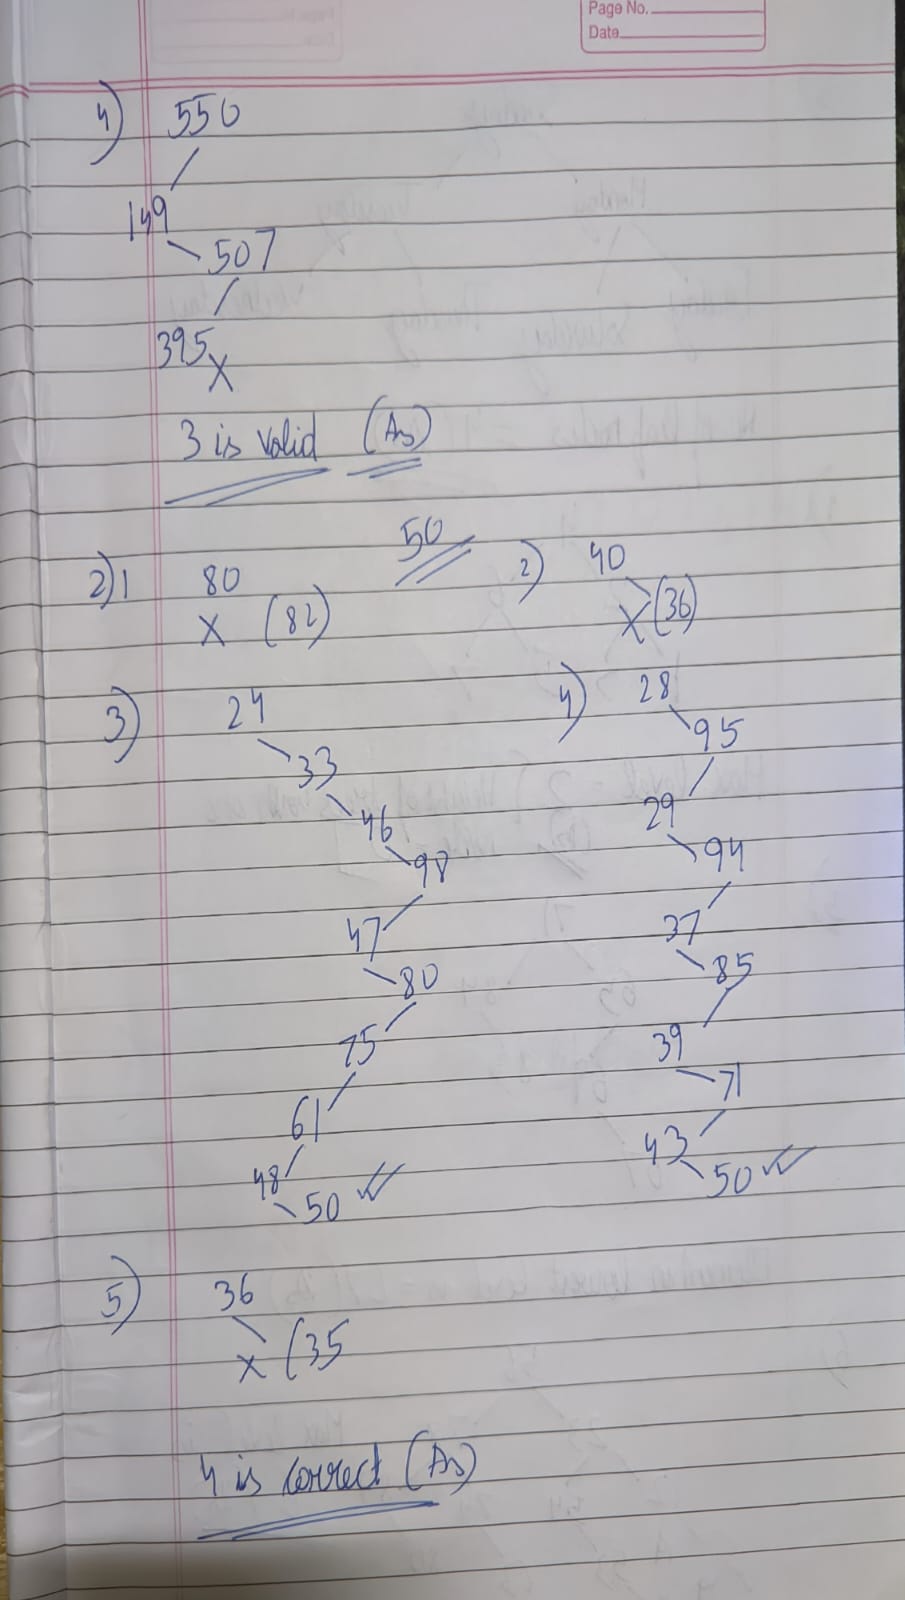 Page No.
Date
4) 550
149
507
395 X
3 is valid (As)
50
2) 1 80
X (82)
2) 40
X (36)
3) 24
33
46
98
47
80
75
61
48
50
4) 28
95
29
94
37
85
39
71
43
50
5) 36
X (35
4 is correct (As)